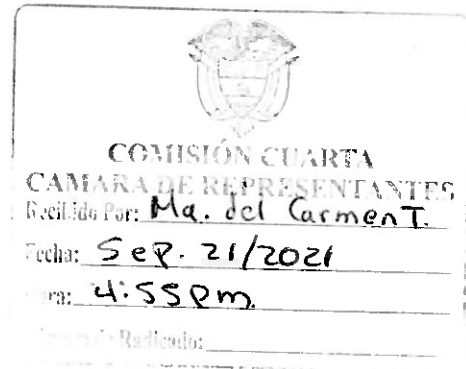 COMISIÓN CUARTA
CAMARA DE REPRESENTANTES
Recibido Por: Ma. del Carmen T.
Fecha: Sep. 21/2021
Hora: 4:55 pm.
de Radicado: